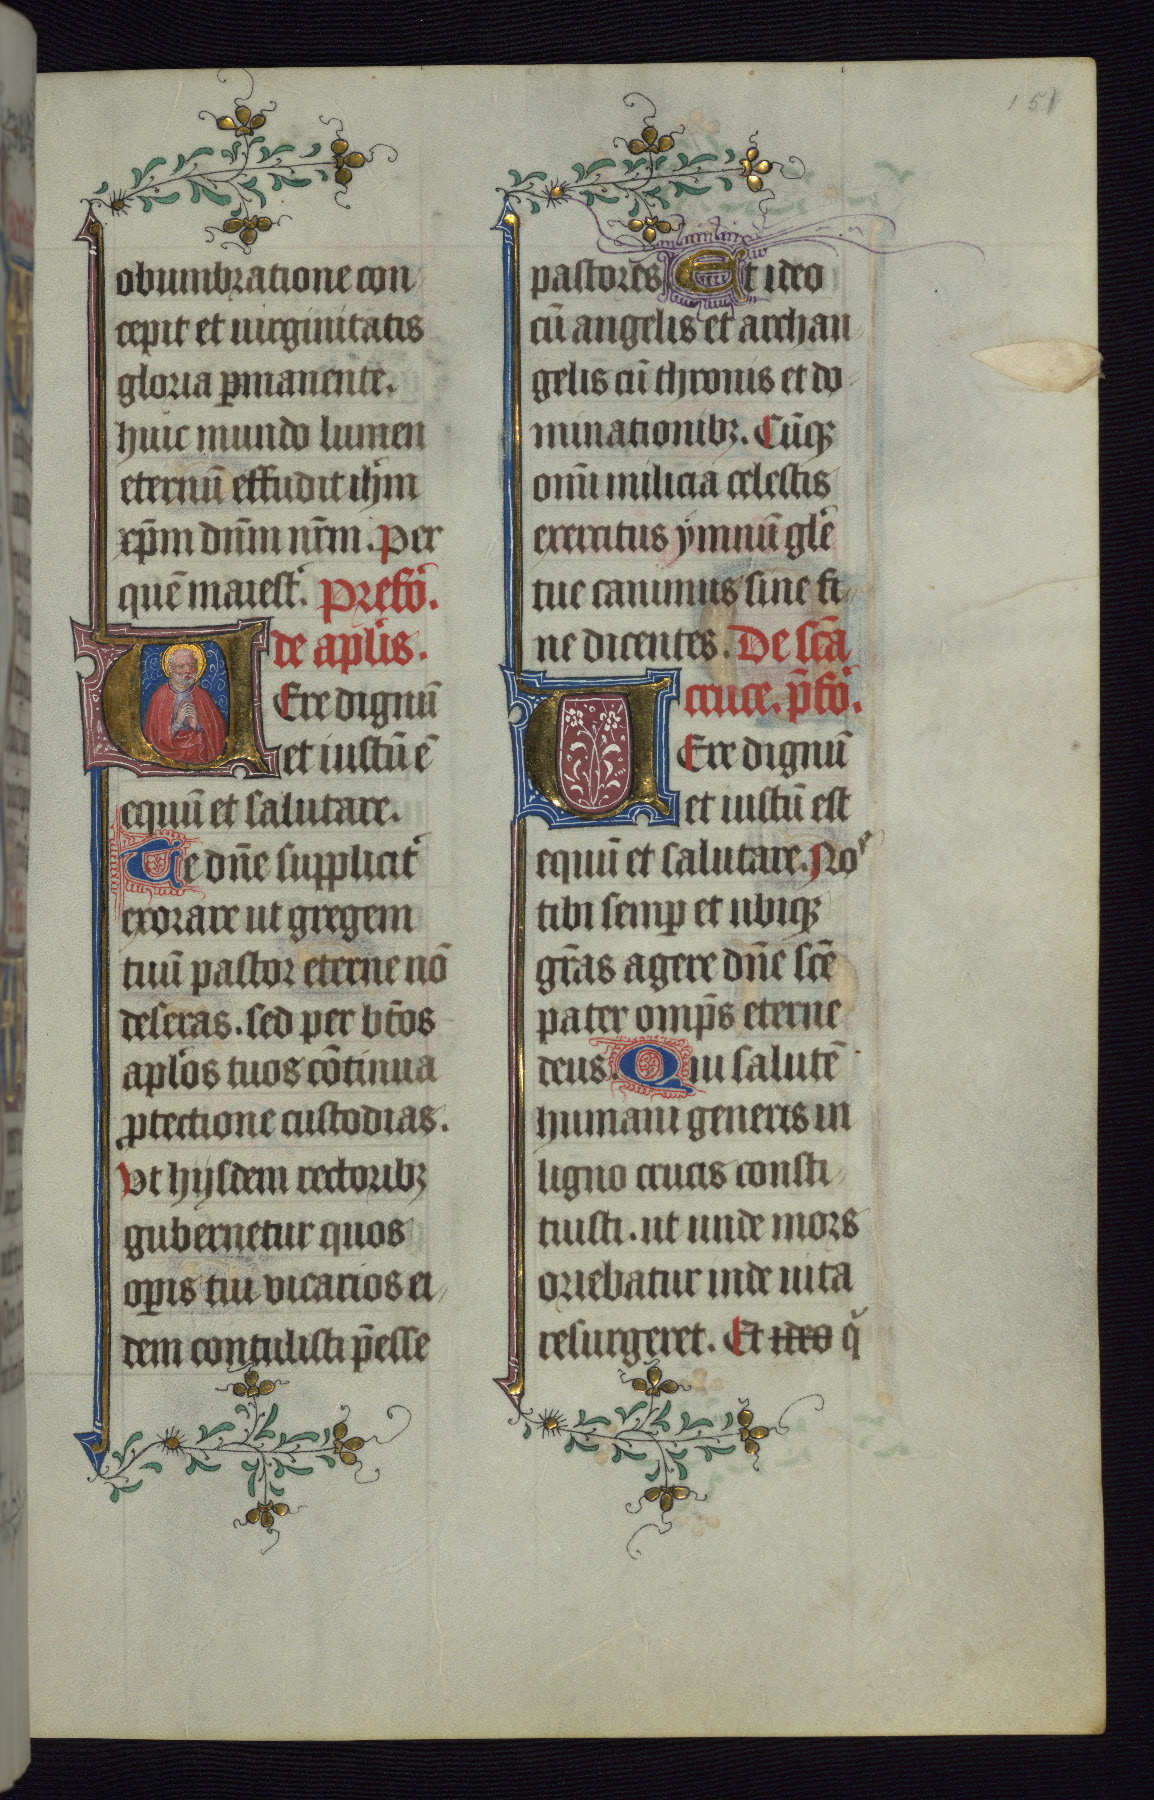 151
obumbratione con
cepit et uirginitatis
gloria pmanente.
huic mundo lumen
eternū effudit ihm̄
xp̄m dn̄m nr̄m. Per
quē maiest̾. Prefō.
de apl̾is.
Uere dignū
et iustū ē
equū et salutare.
Te dn̄e suppliciт̾
exorare ut gregem
tuū pastor eterne nō
deseras. sed per bt̄os
apl̾os tuos cōtinua
ꝓtectione custodias.
Ut hijsdem rectoribꝫ
gubernetur quos
oꝑis tui vicarios ei
dem contulisti p̄esse
pastores Et ideo
cū angelis et archan
gelis cū thronis et do
minationibꝫ. Cūqꝫ
om̄i milicia celestis
exercitus ymnū gl̾e
tue canimus sine fi
ne dicentes. De sc̄a
cruce. p̄fō.
Uere dignū
et iustū est
equū et salutare. Noˢ
tibi semꝑ et ubiqꝫ
gr̄as agere dn̄e sc̄e
pater omp̄s eterne
deus. Qui salutē
humani generis in
ligno crucis consti
tuisti. ut unde mors
oriebatur inde uita
resurgeret. Et ideo q̾